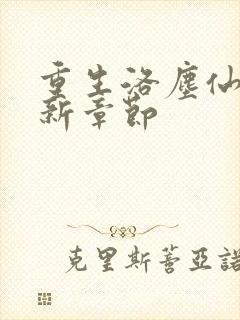 重生洛塵仙
新章節
克里斯蒂亞諾